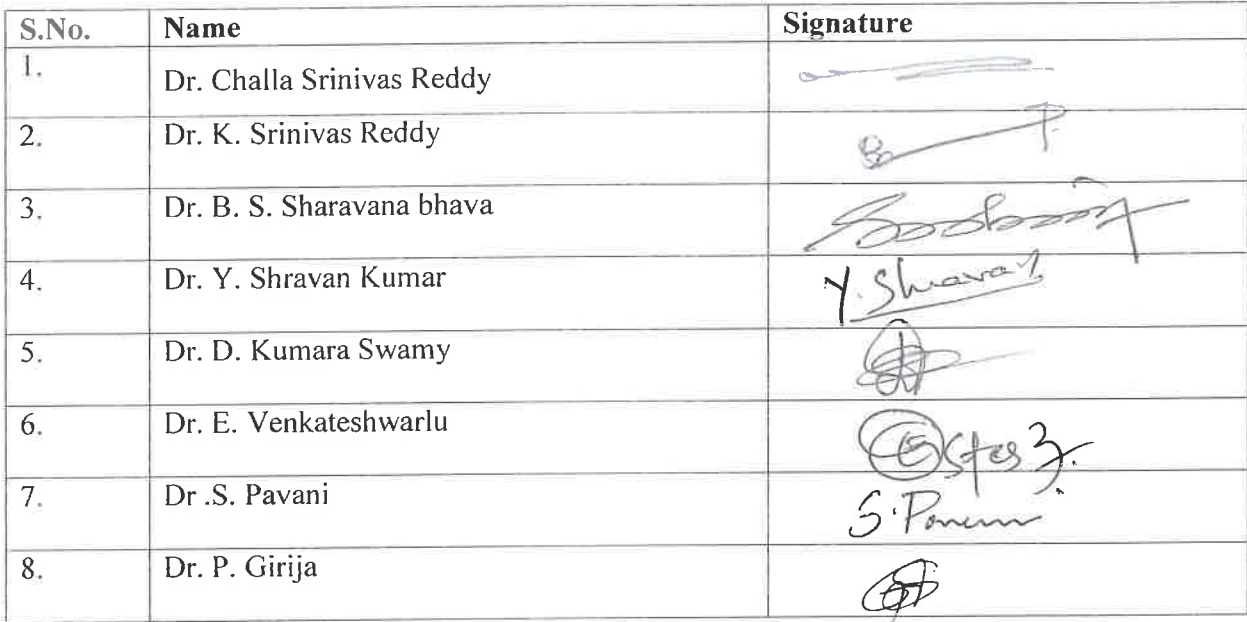 S.No. Name Signature
1. Dr. Challa Srinivas Reddy
2. Dr. K. Srinivas Reddy
3. Dr. B. S. Sharavana bhava
4. Dr. Y. Shravan Kumar Y. Shravan
5. Dr. D. Kumara Swamy
6. Dr. E. Venkateshwarlu
7. Dr .S. Pavani S.
8. Dr. P. Girija